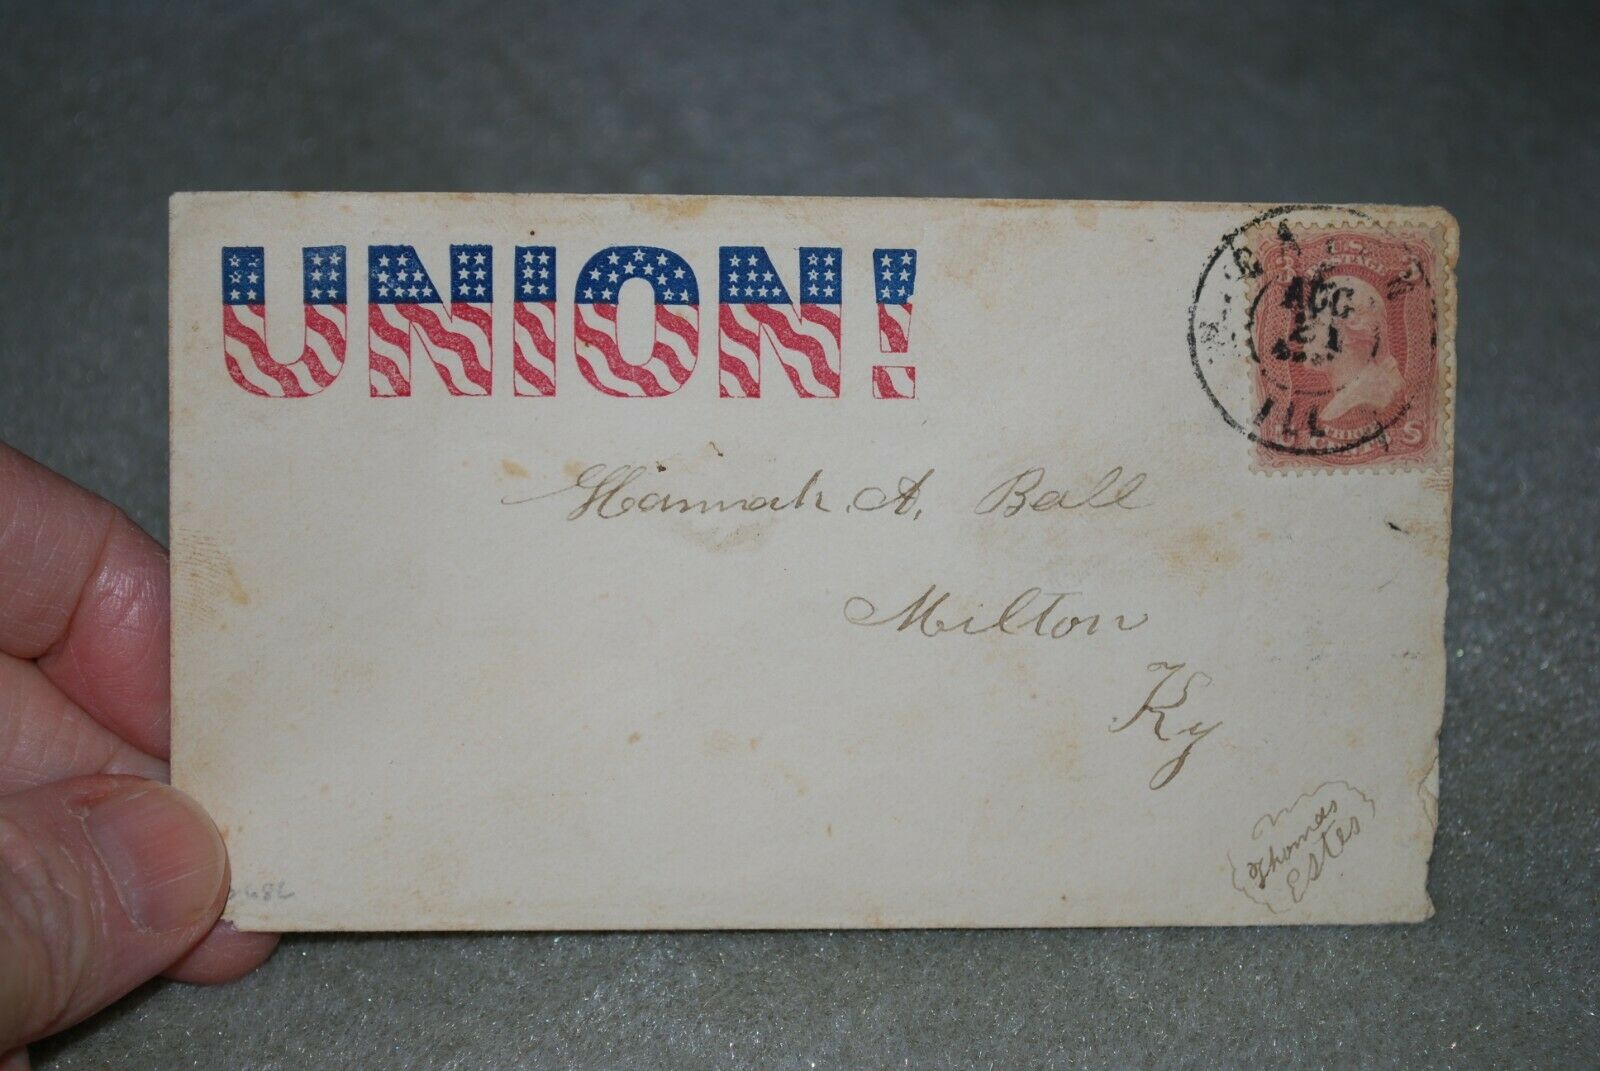 UNION!
U.S. POSTAGE
3
AUG
21
ILL
THREE
CENTS
Hannah. A. Ball
Milton
Ky
Thomas
Estes